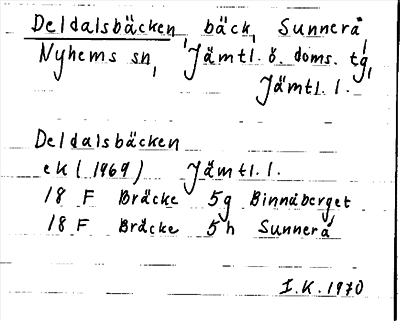 Deldalsbäcken, bäck, Sunnerå,
Nyhems sn, Jämtl. ö. doms. tg,
Jämtl. l.
Deldalsbäcken
ek (1969) Jämtl. l.
18 F Bräcke 5g Binnåberget
18 F Bräcke 5h Sunnerå
I.K. 1970